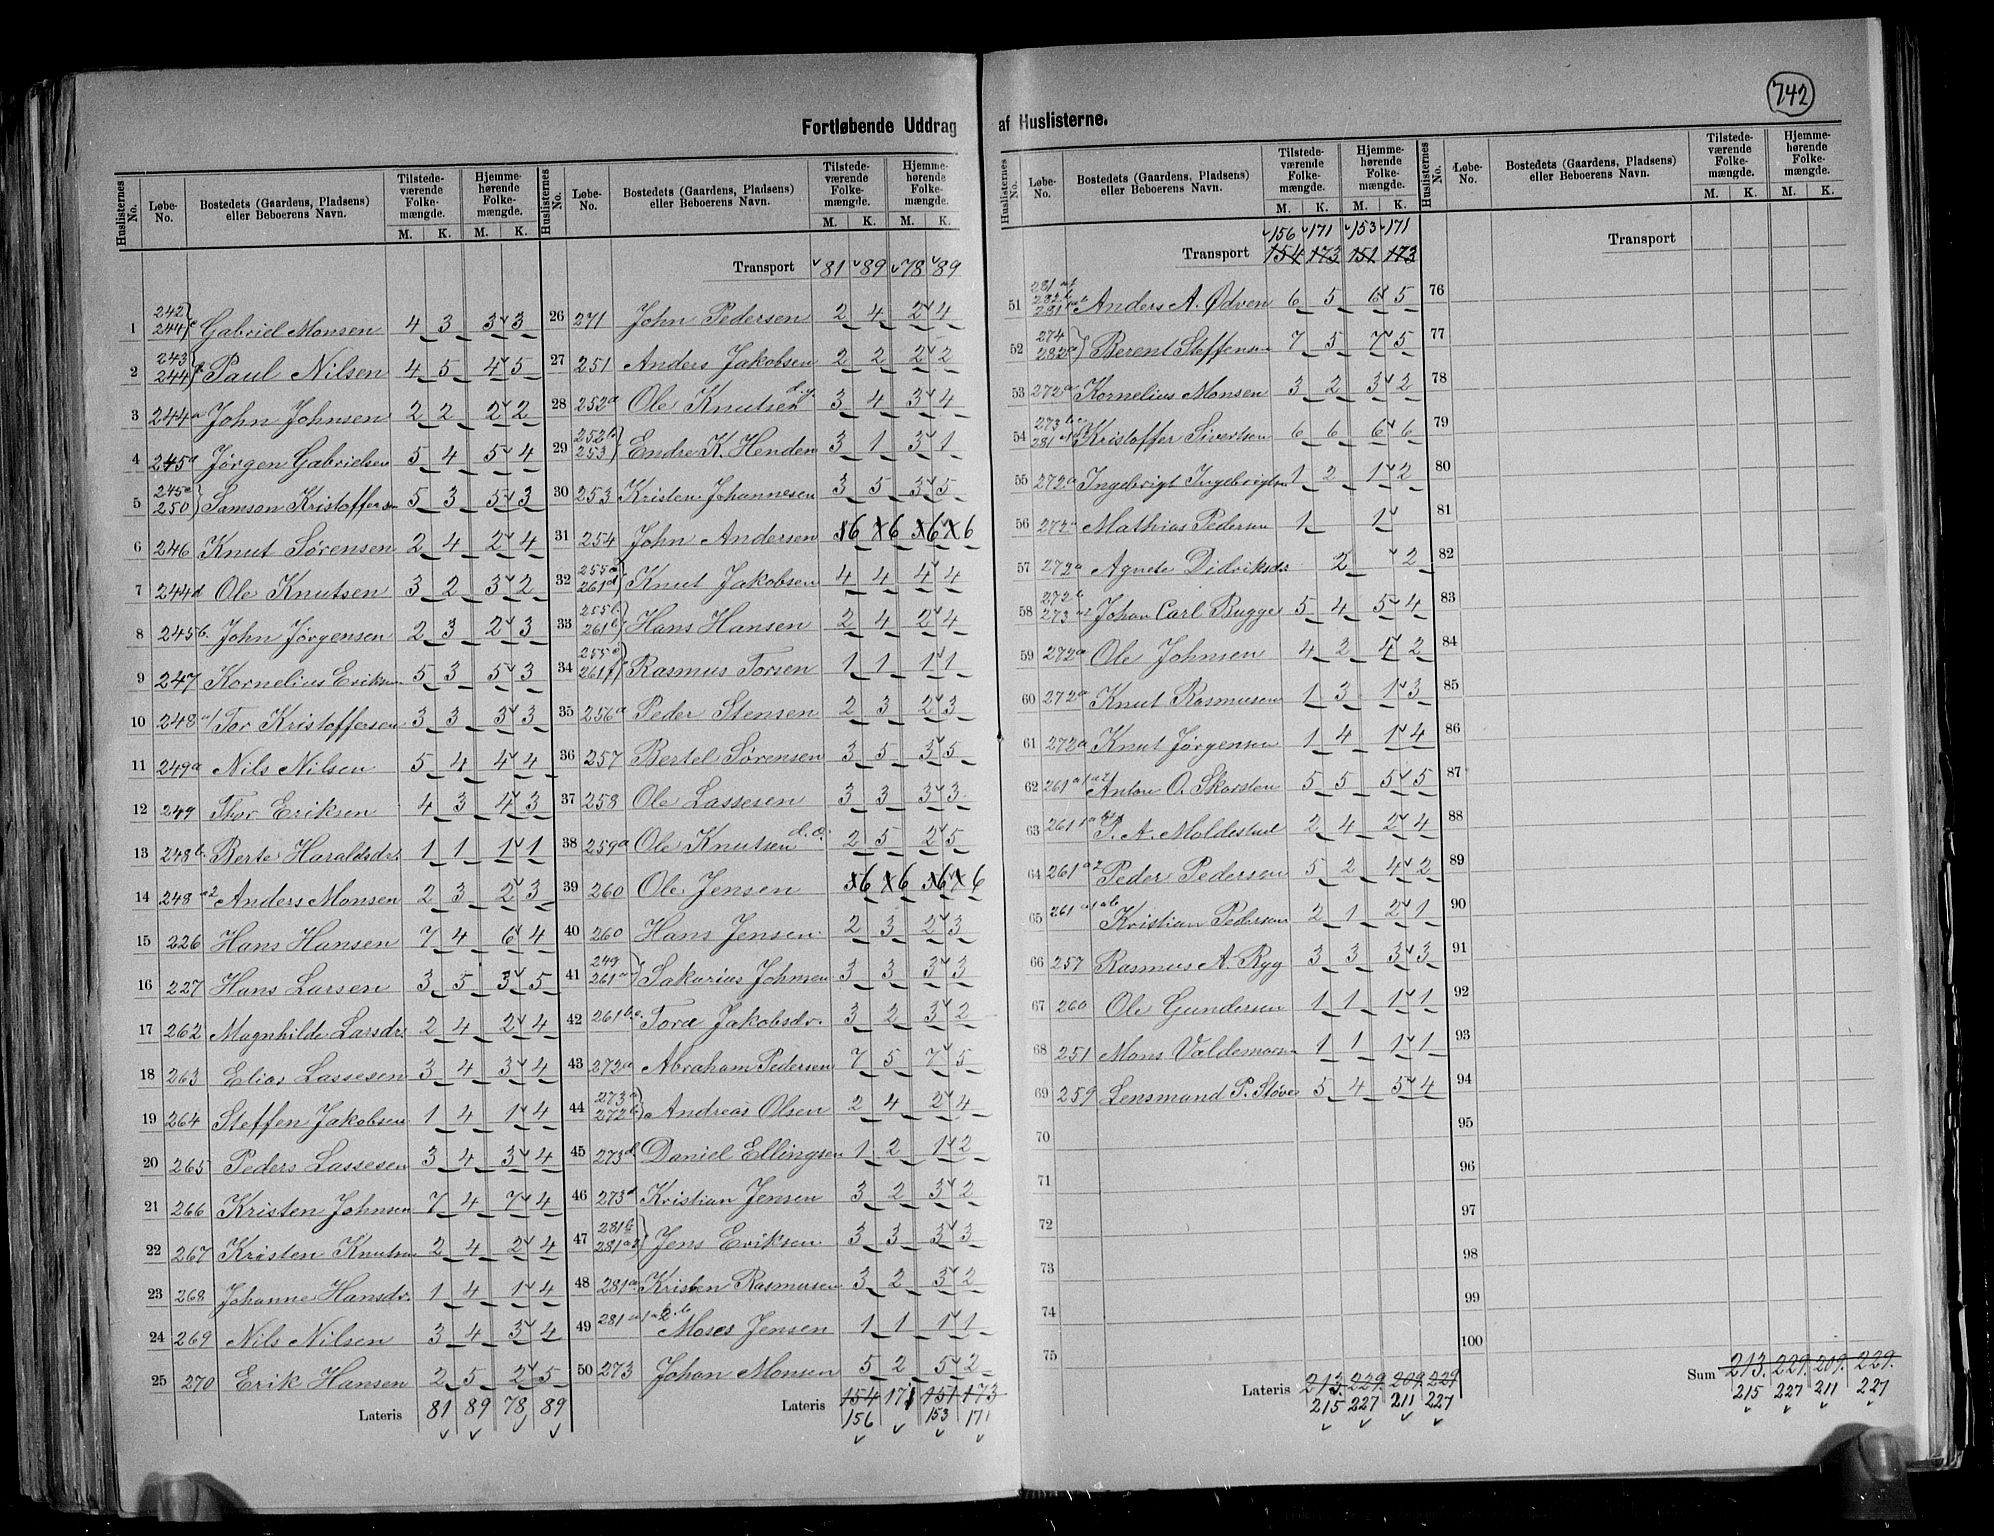 742
Fortløbende Uddrag af Huslisterne.
Huslisternes No. Løbe-No. Bostedets (Gaardens, Pladsens) eller Beboerens Navn. Tilstede-værende Folke-mængde. M. K. Hjemme-hørende Folke-mængde. M. K.
1 242 244c Gabriel Monsen 4 3 3 3
2 243 244 Paul Nilsen 4 5 4 5
3 244a John Johnsen 2 2 2 2
4 245a Jørgen Gabrielsen 5 4 5 4
5 245a 250 Samson Kristoffersen 5 3 5 3
6 246 Knut Sørensen 2 4 2 4
7 244d Ole Knutsen 3 2 3 2
8 245b. John Jørgensen 2 3 2 3
9 247 Kornelius Eriksen 5 3 5 3
10 248a1 Tor Kristoffersen 3 3 3 3
11 249a Nils Nilsen 5 4 4 4
12 249 Thor Eriksen 4 3 4 3
13 248b. Berte Haraldsdr. 1 1 1 1
14 248a2 Anders Monsen 2 3 2 3
15 226 Hans Hansen 7 4 6 4
16 227 Hans Larsen 3 5 3 5
17 262 Magnhilde Larsdr. 2 4 2 4
18 263 Elias Lassesen 3 4 3 4
19 264 Steffen Jakobsen 1 4 1 4
20 265 Peders Lassesen 3 4 3 4
21 266 Kristen Johnsen 7 4 7 4
22 267 Kristen Knutsen 2 4 2 4
23 268 Johanne Hansdr. 1 4 1 4
24 269 Nils Nilsen 3 4 3 4
25 270 Erik Hansen 2 5 2 5
Lateris 81 89 78 89
Huslisternes No. Løbe-No. Bostedets (Gaardens, Pladsens) eller Beboerens Navn. Tilstede-værende Folke-mængde. M. K. Hjemme-hørende Folke-mængde. M. K.
Transport 81 89 78 89
26 271 John Pedersen 2 4 2 4
27 251 Anders Jakobsen 2 2 2 2
28 252a Ole Knutsen d.y. 3 4 3 4
29 252b 253 Endre K. Henden 3 1 3 1
30 253 Kristen Johannesen 3 5 3 5
31 254 John Andersen 6 6 6 6
32 255a 261d Knut Jakobsen 4 4 4 4
33 255b 261b Hans Hansen 2 4 2 4
34 255 261f Rasmus Torsen 1 1 1 1
35 256a Peder Stensen 2 3 2 3
36 257 Bertel Sørensen 3 5 3 5
37 258 Ole Lassesen 3 3 3 3
38 259a Ole Knutsen 2 5 2 5
39 260 Ole Jensen 6 6 6 6
40 260 Hans Jensen 2 3 2 3
41 249 261a Sakarias Johnsen 3 3 3 3
42 261b.c. Tora Jakobsdr. 3 2 3 2
43 272a Abraham Pedersen 7 5 7 5
44 273a 272b Andreas Olsen 2 4 2 4
45 273d Daniel Ellingsen 1 2 1 2
46 273d Kristian Jensen 3 2 3 2
47 281b 281a2 Jens Eriksen 3 3 3 3
48 281a Kristen Rasmusen 3 2 3 2
49 281 Moses Jensen 1 1 1 1
50 273 Johan Monsen 5 2 5 2
Lateris 154 171 151 173
156 153 171
Huslisternes No. Løbe-No. Bostedets (Gaardens, Pladsens) eller Beboerens Navn. Tilstede-værende Folke-mængde. M. K. Hjemme-hørende Folke-mængde. M. K.
156 171 153 171
Transport 154 173 151 173
51 281 282b 281 Anders A. Ødven 6 5 6 5
52 274 282a Berent Steffensen 7 5 7 5
53 272a Kornelius Monsen 3 2 3 2
54 273b 281 Kristoffer Sivertsen 6 6 6 6
55 272a Ingebrigt Ingebrigtsen 1 2 1 2
56 272a Mathias Pedersen 1 1
57 272a Agnete Didriksdr. 2 2
58 272b 273 Johan Carl Bugge 5 4 5 4
59 272a Ole Johnsen 4 2 4 2
60 272a Knut Rasmusen 1 3 1 3
61 272a Knut Jørgensen 1 4 1 4
62 261 Anton O. Skorsten 5 5 5 5
63 261 P. A. Moldestad 2 4 2 4
64 261a2 Peder Pedersen 5 2 4 2
65 261 Kristian Pedersen 2 1 2 1
66 257 Rasmus A. Ryg 3 3 3 3
67 260 Ole Gundersen 1 1 1 1
68 251 Mons Valdemarsen 1 1 1 1
69 259 Lensmand P. Støve 5 4 5 4
70
71
72
73
74
75
Lateris 213. 229. 209. 229
215 227 211 227
Huslisternes No. Løbe-No. Bostedets (Gaardens, Pladsens) eller Beboerens Navn. Tilstede-værende Folke-mængde. M. K. Hjemme-hørende Folke-mængde. M. K.
Transport
76
77
78
79
80
81
82
83
84
85
86
87
88
89
90
91
92
93
94
95
96
97
98
99
100
Sum 213. 229. 209. 229.
215 227 211 227